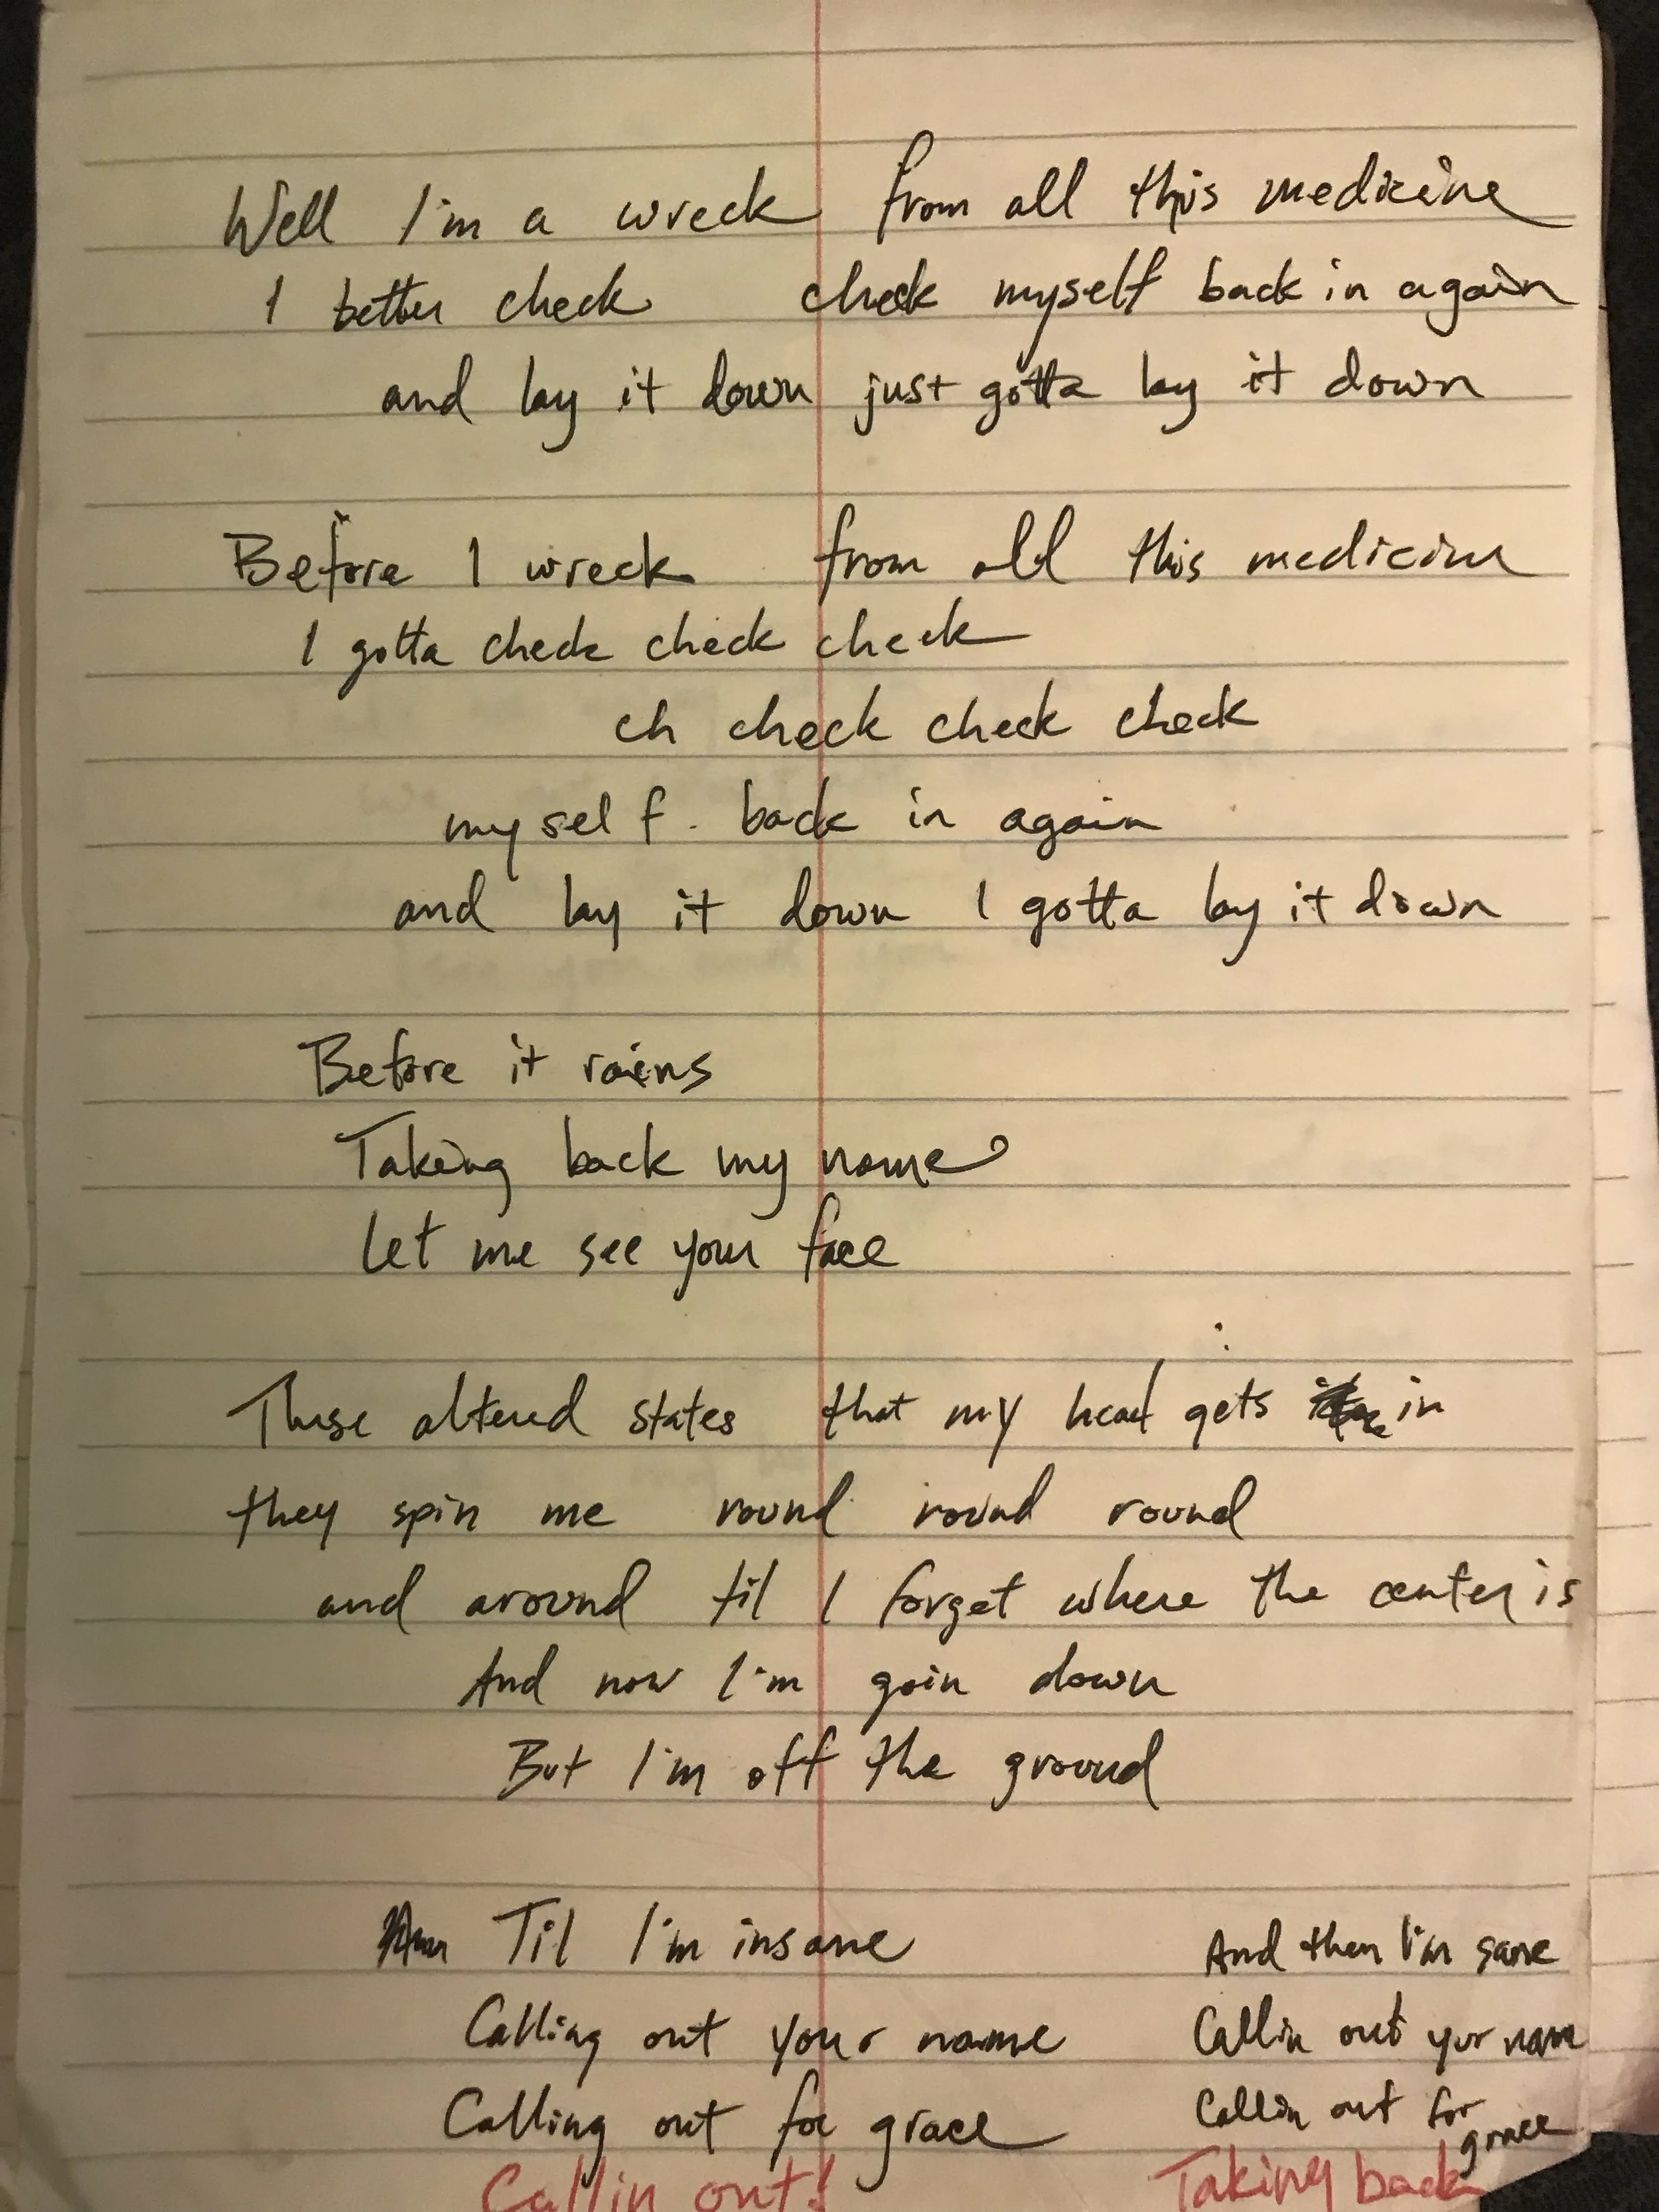 Well I'm a wreck from all this medicine
I better check check myself back in again
and lay it down just gotta lay it down
Before I wreck from all this medicine
I gotta check check check
ch check check check
myself. back in again
and lay it down I gotta lay it down
Before it rains
Taking back my name
Let me see your face
These altered states that my head gets in
they spin me round round round
and around til I forget where the center is
And now I'm goin down
But I'm off the ground
Til I'm insane
Calling out your name
Calling out for grace
And then I'm sane
Callin out your name
Callin out for
grace
Callin out!
Taking back